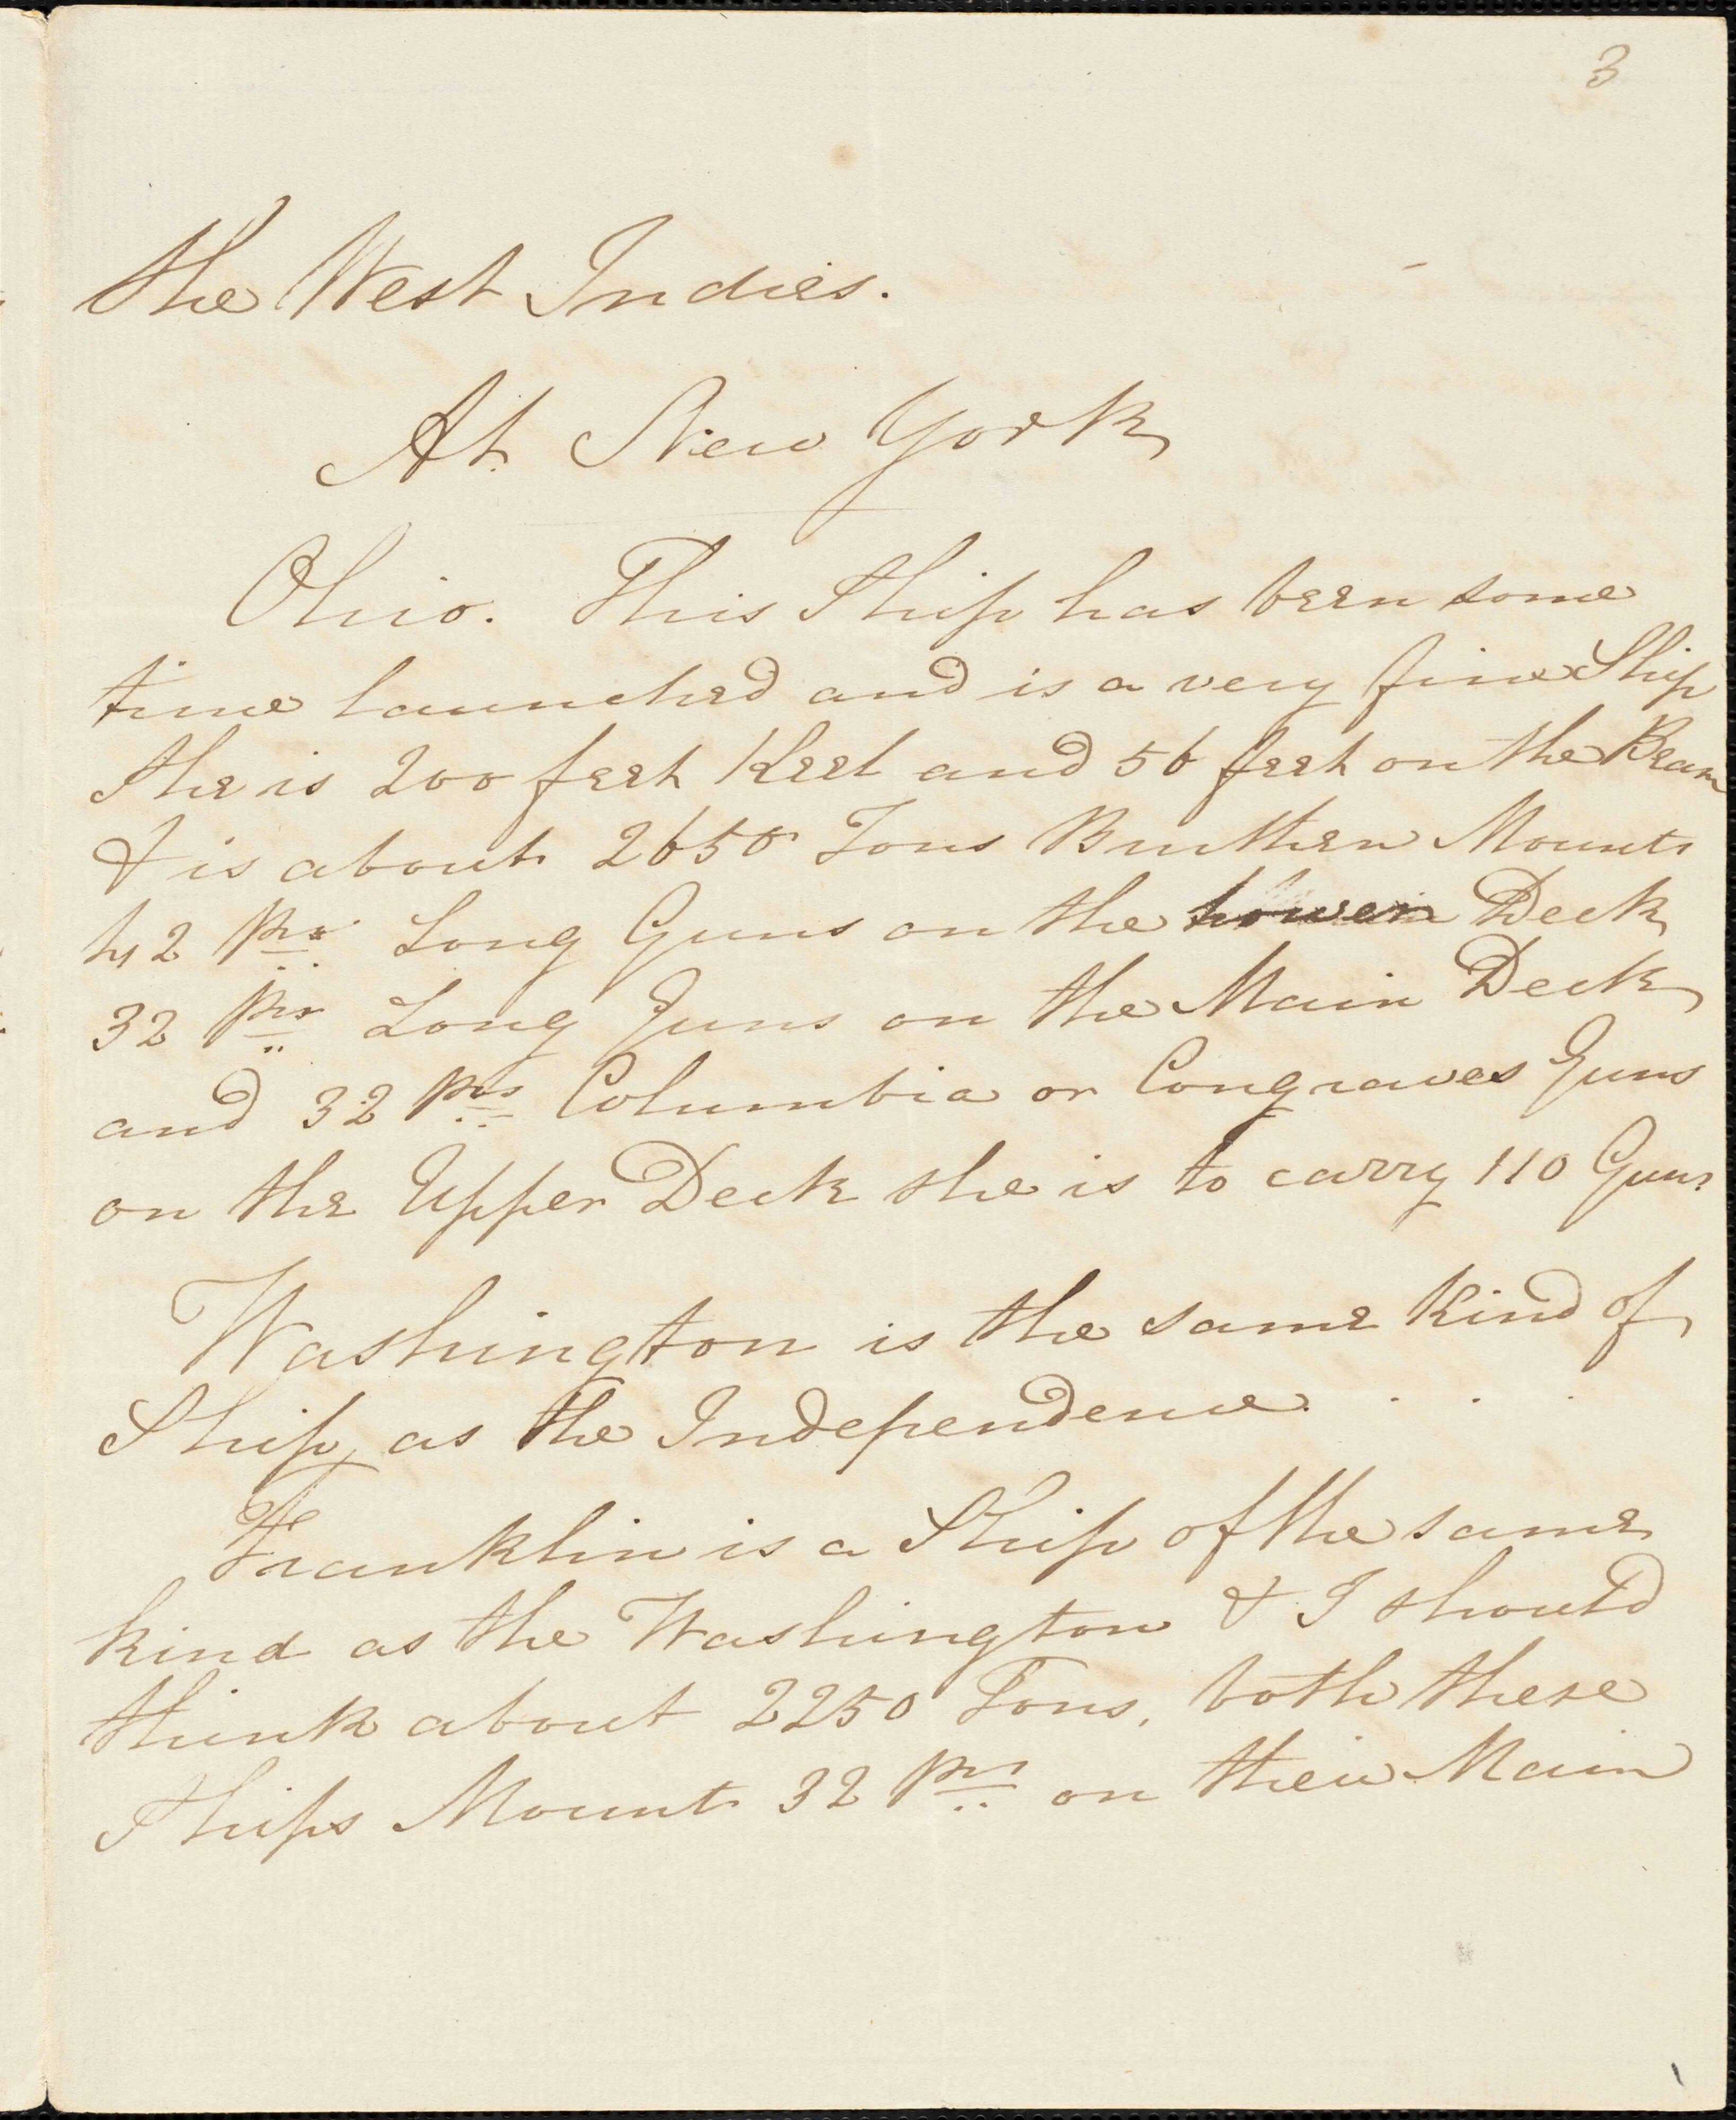 3
the West Indies.
At New York
Ohio. This Ship has been some
time launched and is a very fine Ship
She is 200 feet Keel and 56 feet on the Beam
& is about 2650 Tons Burthen Mounts
42 Prs Long Guns on the Lower Deck
32 Prs Long Guns on the Main Deck
and 32 Prs Columbia or Congraves Guns
on the Upper Deck she is to carry 110 Guns
Washington is the same Kind of
Ship as the Independence . . .
Franklin is a Ship of the same
kind as the Washington & I should
think about 2250 Tons, both these
Ships Mount 32 Prs on their Main